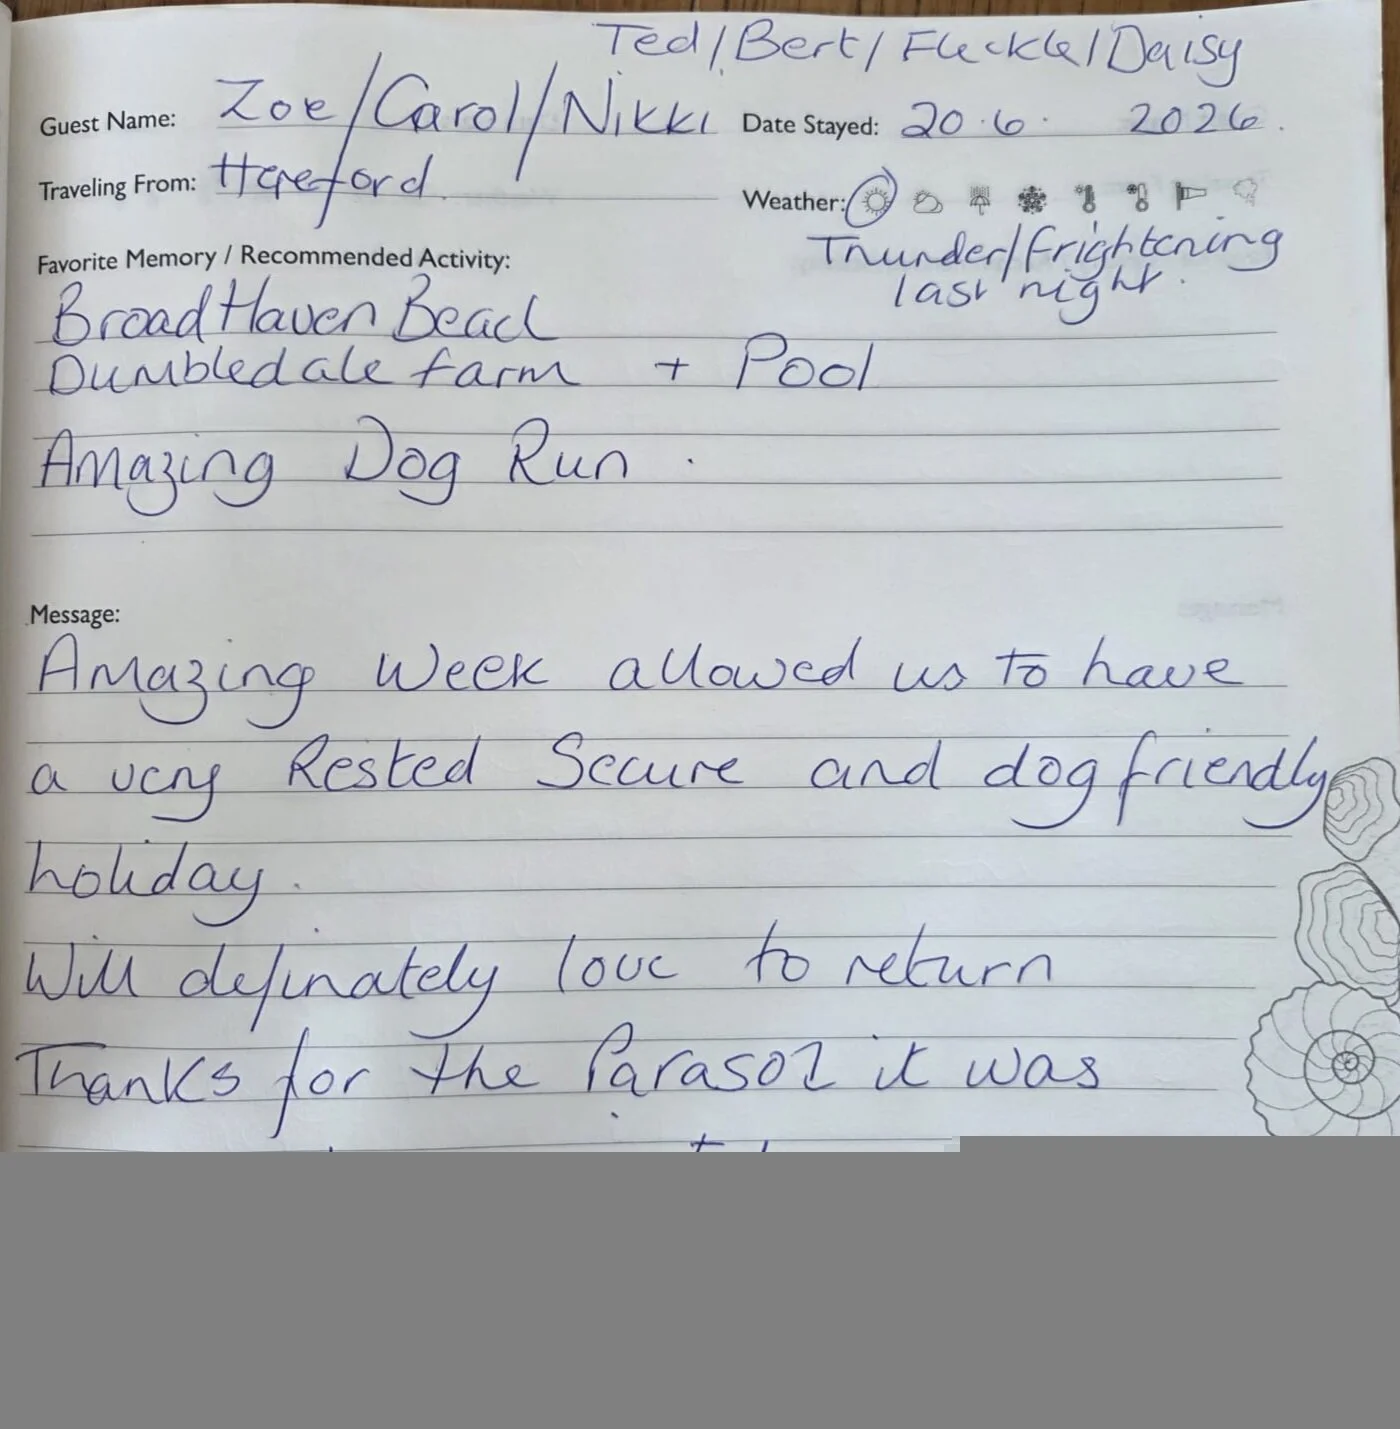 Ted/Bert/Fleckle/Daisy
Guest Name: Zoe/Carol/Nikki Date Stayed: 20.6. 2026.
Traveling From: Hereford Weather:
Thunder/frightening
last night.
Favorite Memory / Recommended Activity:
Broad Haven Beach
Dumbledale farm + Pool
Amazing Dog Run.
Message:
Amazing week allowed us to have
a very Rested Secure and dog friendly
holiday.
Will definately love to return
Thanks for the Parasol it was